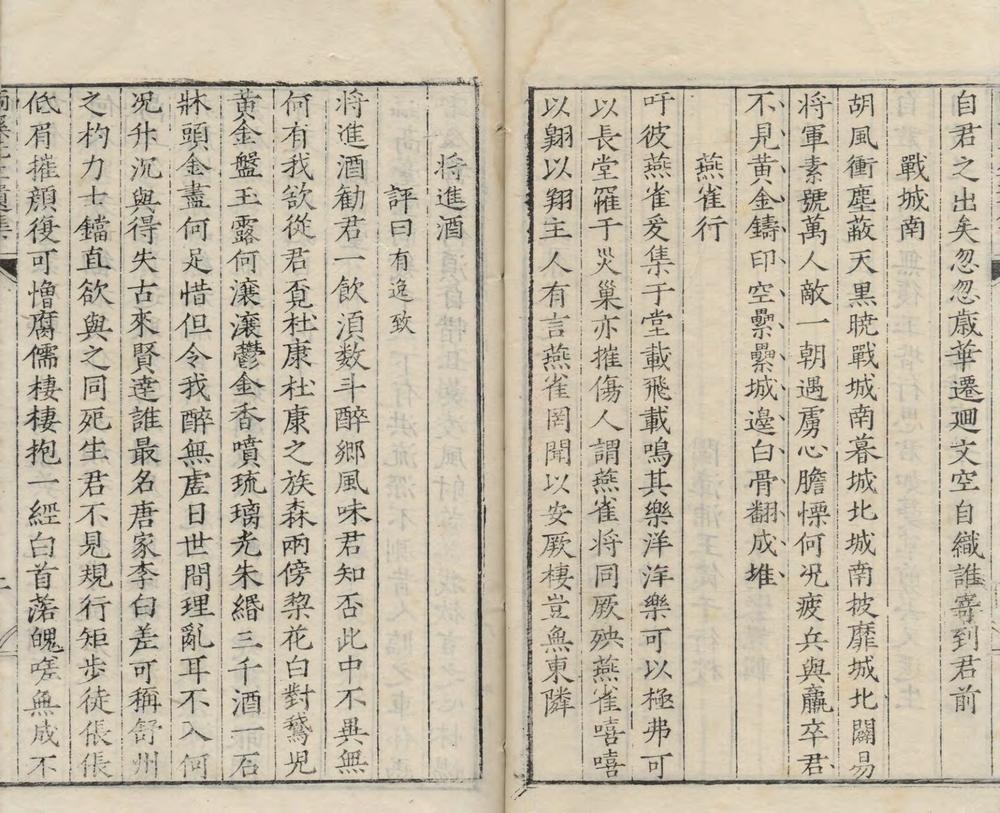 自君之出矣忽忽歲華遷廻文空自織誰寄到君前
戰城南
胡風衝塵蔽天黑曉戰城南暮城北城南披靡城北闘易
將軍素號萬人敵一朝遇虜心膽慄何况疲兵與羸卒君
不見黃金鑄印空纍纍城邊白骨翻成堆
燕雀行
吁彼燕雀爰集于堂載飛載鳴其樂洋洋樂可以極弗可
以長堂罹于災巢亦摧傷人謂燕雀將同厥殃燕雀嘻嘻
以翺以翔主人有言燕雀罔聞以安厥棲豈無東隣
將進酒
評曰有逸致
將進酒勸君一飲湏数斗醉鄉風味君知否此中不異無
何有我欲從君覔杜康杜康之族森兩傍梨花白對鵞兒
黃金盤玉露何瀼瀼鬱金香噴琉璃光朱緡三千酒一石
牀頭金盡何足惜但令我醉無虛日世間理亂耳不入何
况升沉與得失古來賢達誰最名唐家李白差可稱舒州
之杓力士鐺直欲與之同死生君不見規行矩步徒倀倀
低眉摧顔復可憎腐儒棲棲抱一經白首落魄嗟無成不